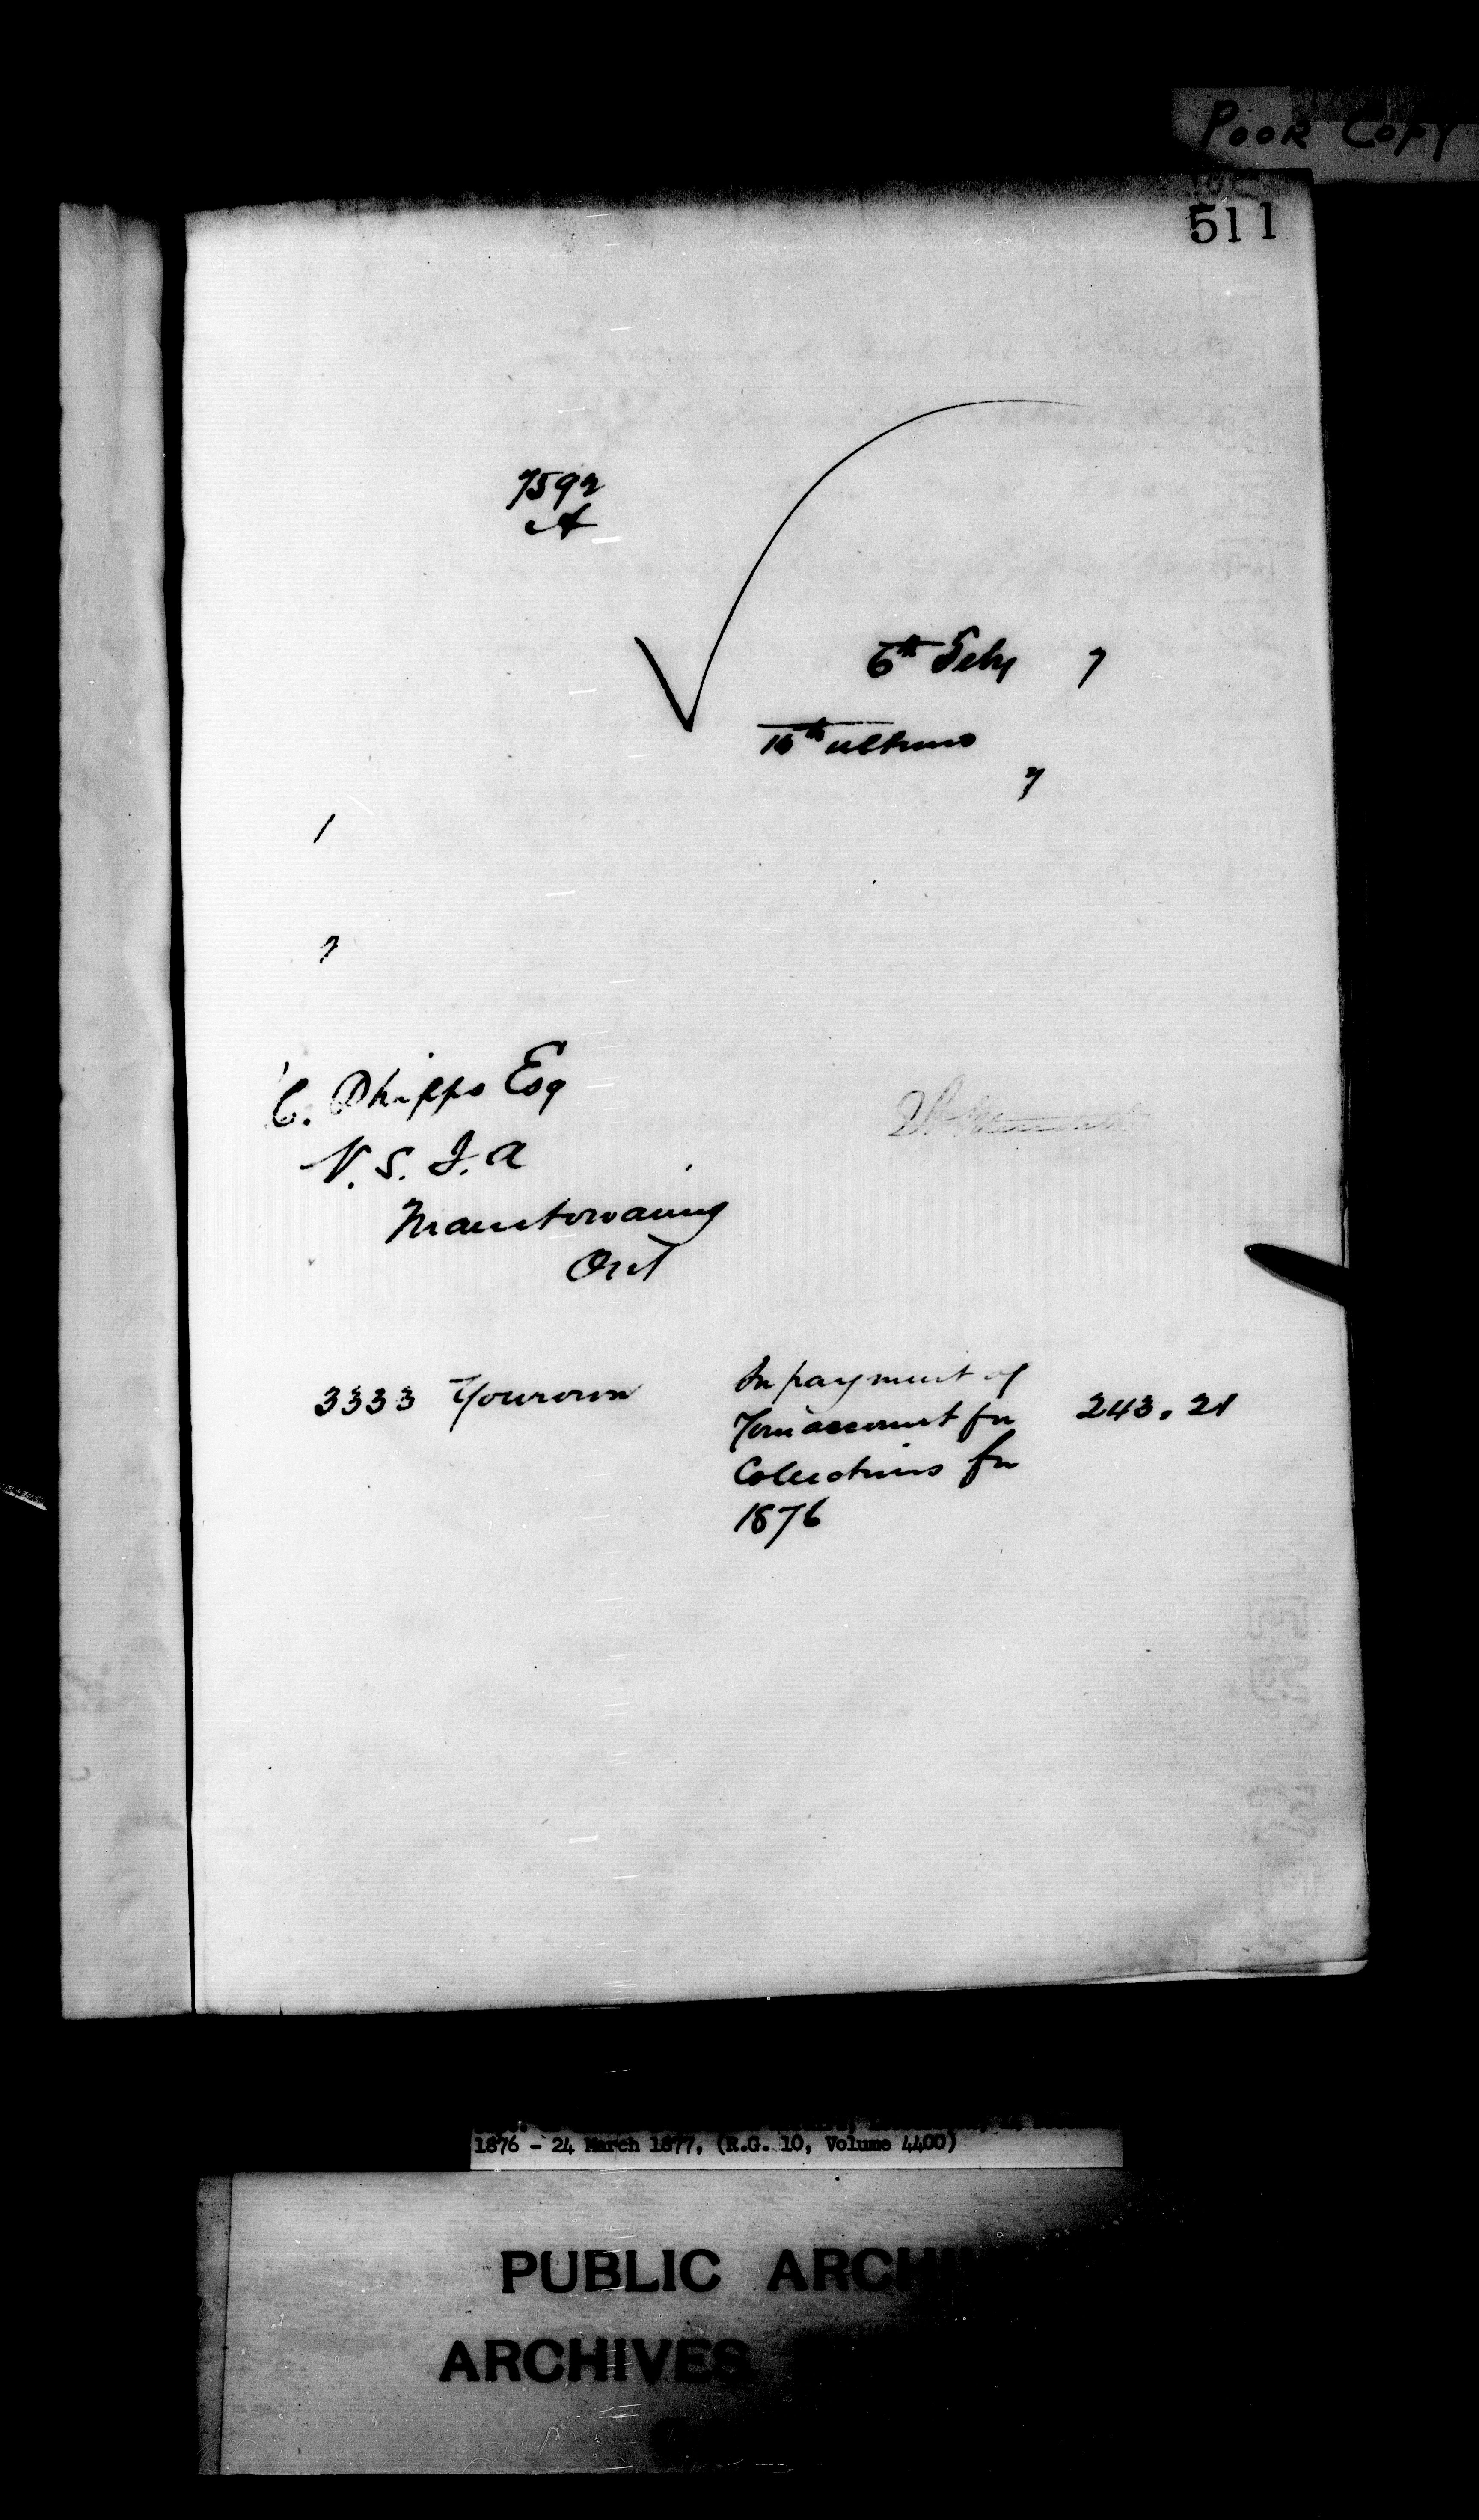 POOR COPY
511
7592
A
6th Feby 7
16th ultimo
7
1
7
C. Phipps Esq
V. S. I. A
Manitowaning
Ont
3333 Your own In payment of
Your account for 243.21
Collections for
1876
1876 - 24 March 1877, (R.G. 10, Volume 4400)
PUBLIC ARCHI
ARCHIVES